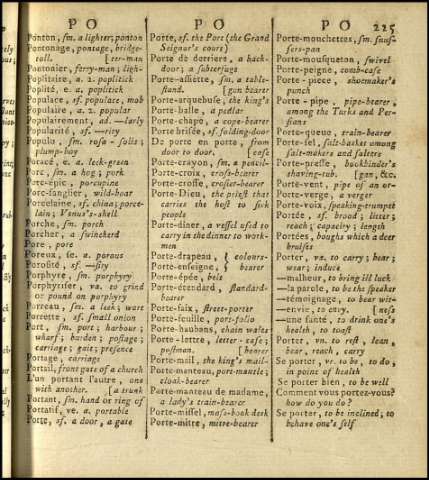 PO PO PO 225
Ponton, sm. a lighter; ponton
Pontonage, pontage, bridge-
toll. [ter-man
Pontonier, ferry-man; ligh-
Poplitaire, a. 2. poplitick
Poplité, e. a. poplitick
Populace, sf. populace, mob
Populaire, a. 2. popular
Populairement, ad. —larly
Popularité, sf. —rity
Populo, sm. rosa-solis;
plump-boy
Poracé, e. a. leek-green
Porc, sm. a hog; pork
Porc-épic, porcupine
Porc-sanglier, wild-boar
Porcelaine, sf. china; porce-
lain; Venus's-shell
Porche, sm. porch
Porcher, sm. a swineherd
Pore, pore
Poreux, se. a. porous
Porosité, sf. —sity
Porphyre, sm. porphyry
Porphyriser, va. to grind
or pound on porphyry
Porreau, sm. a leek; wart
Porrette, sf. small onion
Port, sm. port; harbour;
wharf; burden; postage;
carriage; gait; presence
Portage, carriage
Portail, front gate of a church
L'un portant l'autre, one
with another. [a trunk
Portant, sm. hand or ring of
Portatif, ve. a. portable
Porte, sf. a door, a gate
Porte, sf. the Port (the Grand
Seignor's court)
Porte de derriere, a back-
door; a subterfuge
Porte-assiette, sm. a table-
stand. [gun bearer
Porte-arquebuse, the king's
Porte-balle, a pedlar
Porte-chape, a cope-bearer
Porte brisée, sf. folding-door
De porte en porte, from
door to door. [case
Porte-crayon, sm. a pencil-
Porte-croix, cross-bearer
Porte-crosse, crosier-bearer
Porte-Dieu, the priest that
carries the host to sick
people
Porte-diner, a vessel used to
carry in the dinner to work-
men
Porte-drapeau, } colours-
Porte-enseigne, } bearer
Porte-épée, belt
Porte-étendard, standard-
bearer
Porte-faix, street-porter
Porte-feuille, port-folio
Porte-haubans, chain wales
Porte-lettre, letter-case;
postman. [bearer
Porte-mail, the king's mail-
Porte-manteau, port-mantle;
cloak-bearer
Porte-manteau de madame,
a lady's train-bearer
Porte-missel, mass-book desk
Porte-mitre, mitre-bearer
Porte-mouchettes, sm. snuf-
fers-pan
Porte-mousqueton, swivel
Porte-peigne, comb-case
Porte-piece, shoemaker's
punch
Porte-pipe, pipe-bearer,
among the Turks and Per-
sians
Porte-queue, train-bearer
Porte-sel, salt-basket among
salt-makers and salters
Porte-presse, bookbinder's
shaving-tub. [gan, &c.
Porte-vent, pipe of an or-
Porte-verge, a verger
Porte-voix, speaking-trumpet
Portée, sf. brood; litter;
reach; capacity; length
Portées, boughs which a deer
bruises
Porter, va. to carry; bear;
wear; induce
—malheur, to bring ill luck
—la parole, to be the speaker
—témoignage, to bear wit-
—envie, to envy. [ness
—une santé, to drink one's
health, to toast
Porter, vn. to rest, lean,
bear, reach, carry
Se porter, vr. to be, to do,
in point of health
Se porter bien, to be well
Comment vous portez-vous?
how do you do?
Se porter, to be inclined; to
behave one's self